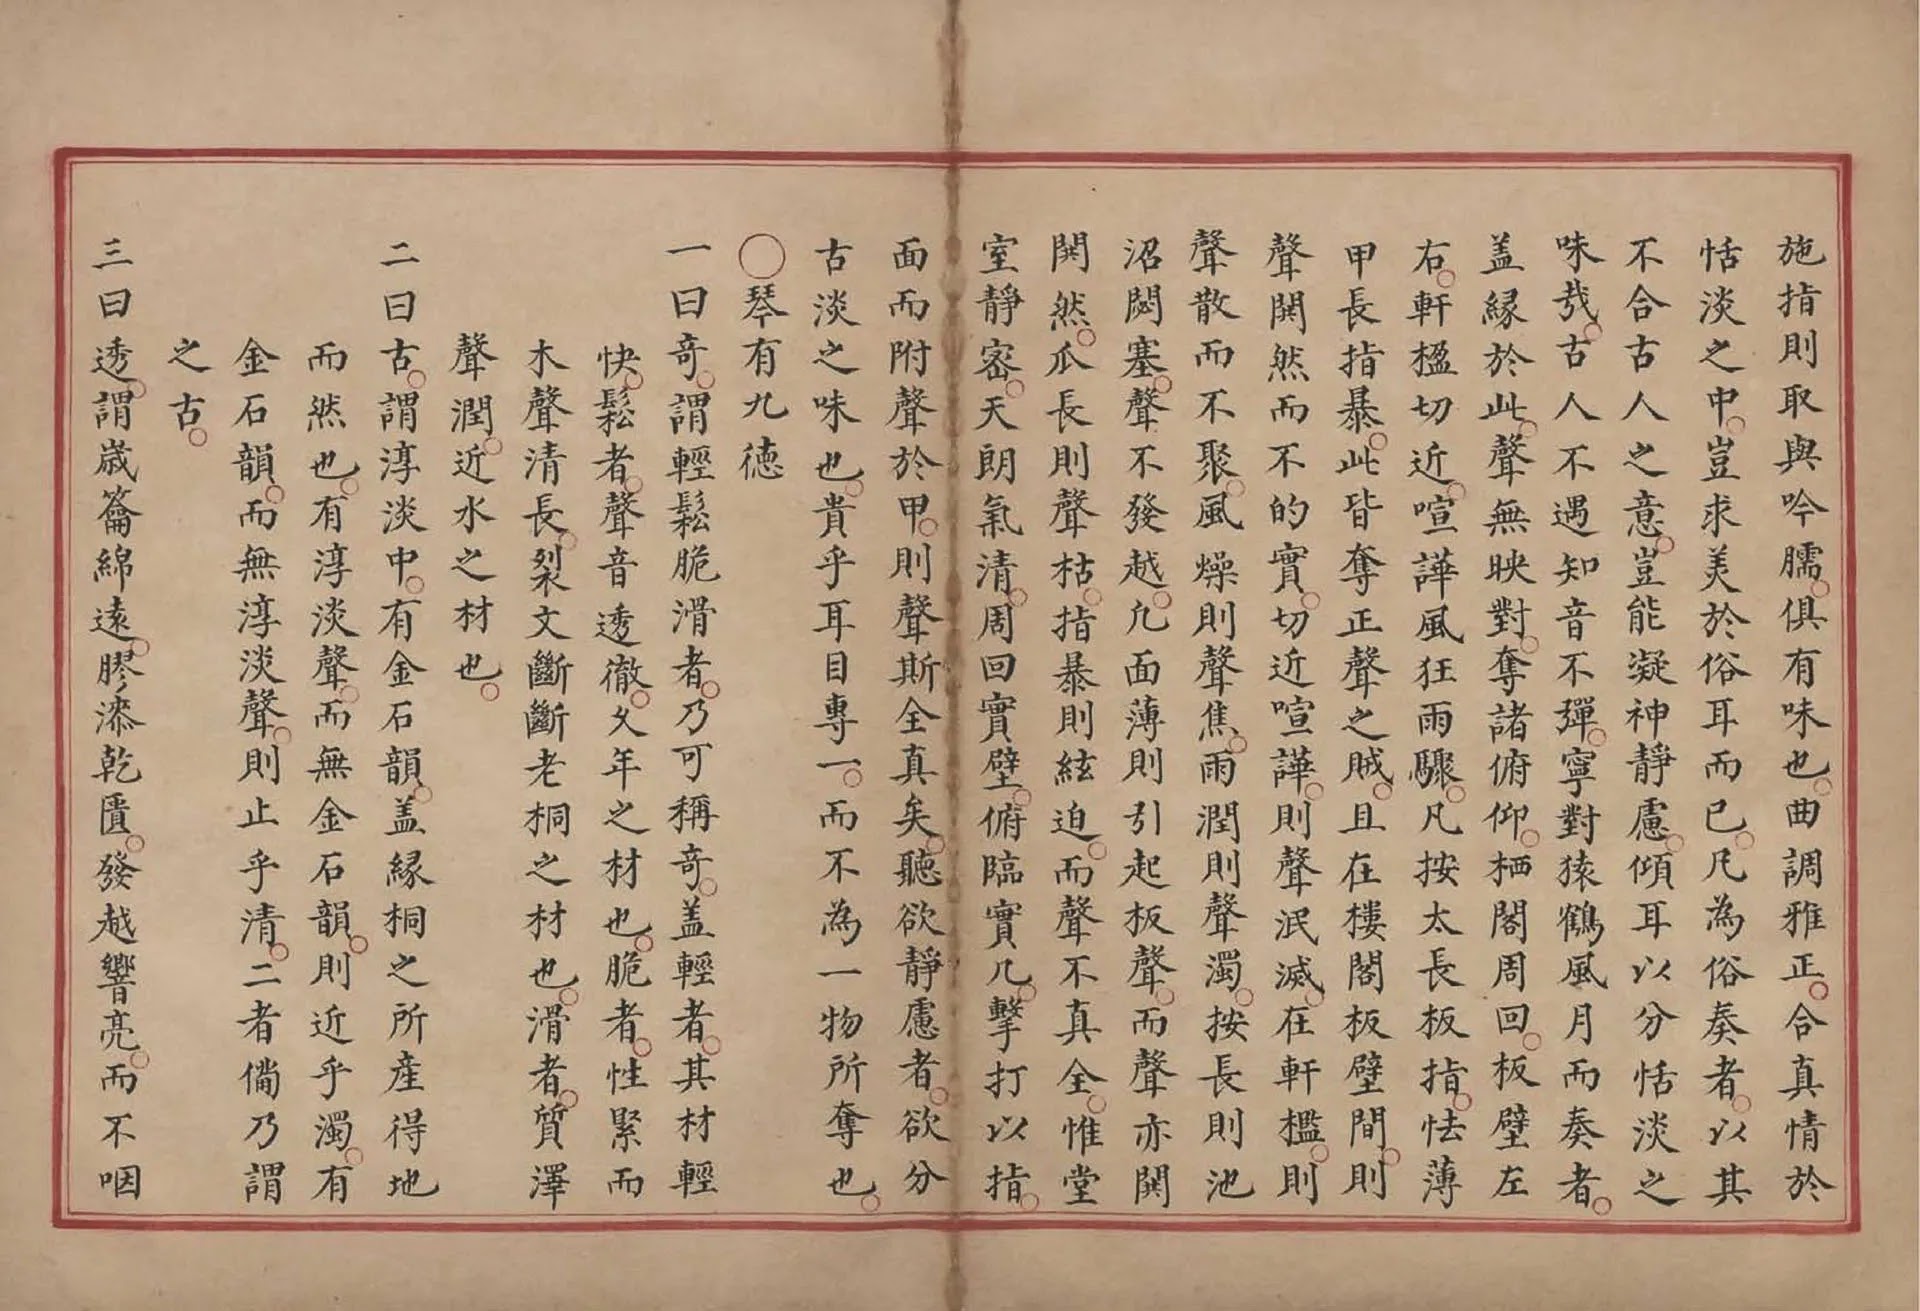 施指則取與吟臑○俱有味也○曲調雅正○合真情於
恬淡之中○豈求美於俗耳而已○凡為俗奏者○以其
不合古人之意○豈能凝神靜慮○傾耳以分恬淡之
味㢤○古人不遇知音不彈○寧對猿鶴風月而奏者○
盖緣於此○聲無映對○奪諸俯仰○栖閣周回○板壁左
右○軒楹切近○喧譁風狂雨驟○凡按太長板指○怯薄
甲長指暴○此皆奪正聲之賊○且在樓閣板壁間○則
聲閧然而不的實○切近喧譁○則聲泯滅○在軒檻○則
聲散而不聚○風燥則聲焦○雨潤則聲濁○按長則池
沼閼塞○聲不發越○凢面薄則引起板聲○而聲亦閧
閧然○瓜長則聲枯○指暴則絃迫○而聲不真全○惟堂
室靜宻○天朗氣清○周回實壁○俯臨實几○擊打以指○
面而附聲於甲○則聲斯全真矣○聽欲靜慮者○欲分
古淡之味也○貴乎耳目專一○而不為一物所奪也○
○琴有九徳
一曰竒○謂輕鬆脆滑者○乃可稱竒○盖輕者○其材輕
快○鬆者○聲音透徹○久年之材也○脆者○性緊而
木聲清長○裂文斷斷老桐之材也○滑者○質澤
聲潤○近水之材也○
二曰古○謂淳淡中○有金石韻○盖緣桐之所産得地
而然也○有淳淡聲○而無金石韻○則近乎濁○有
金石韻○而無淳淡聲○則止乎清○二者備乃謂
之古○
三曰透○謂歳籥綿遠○膠漆乾匱○發越響亮○而不咽